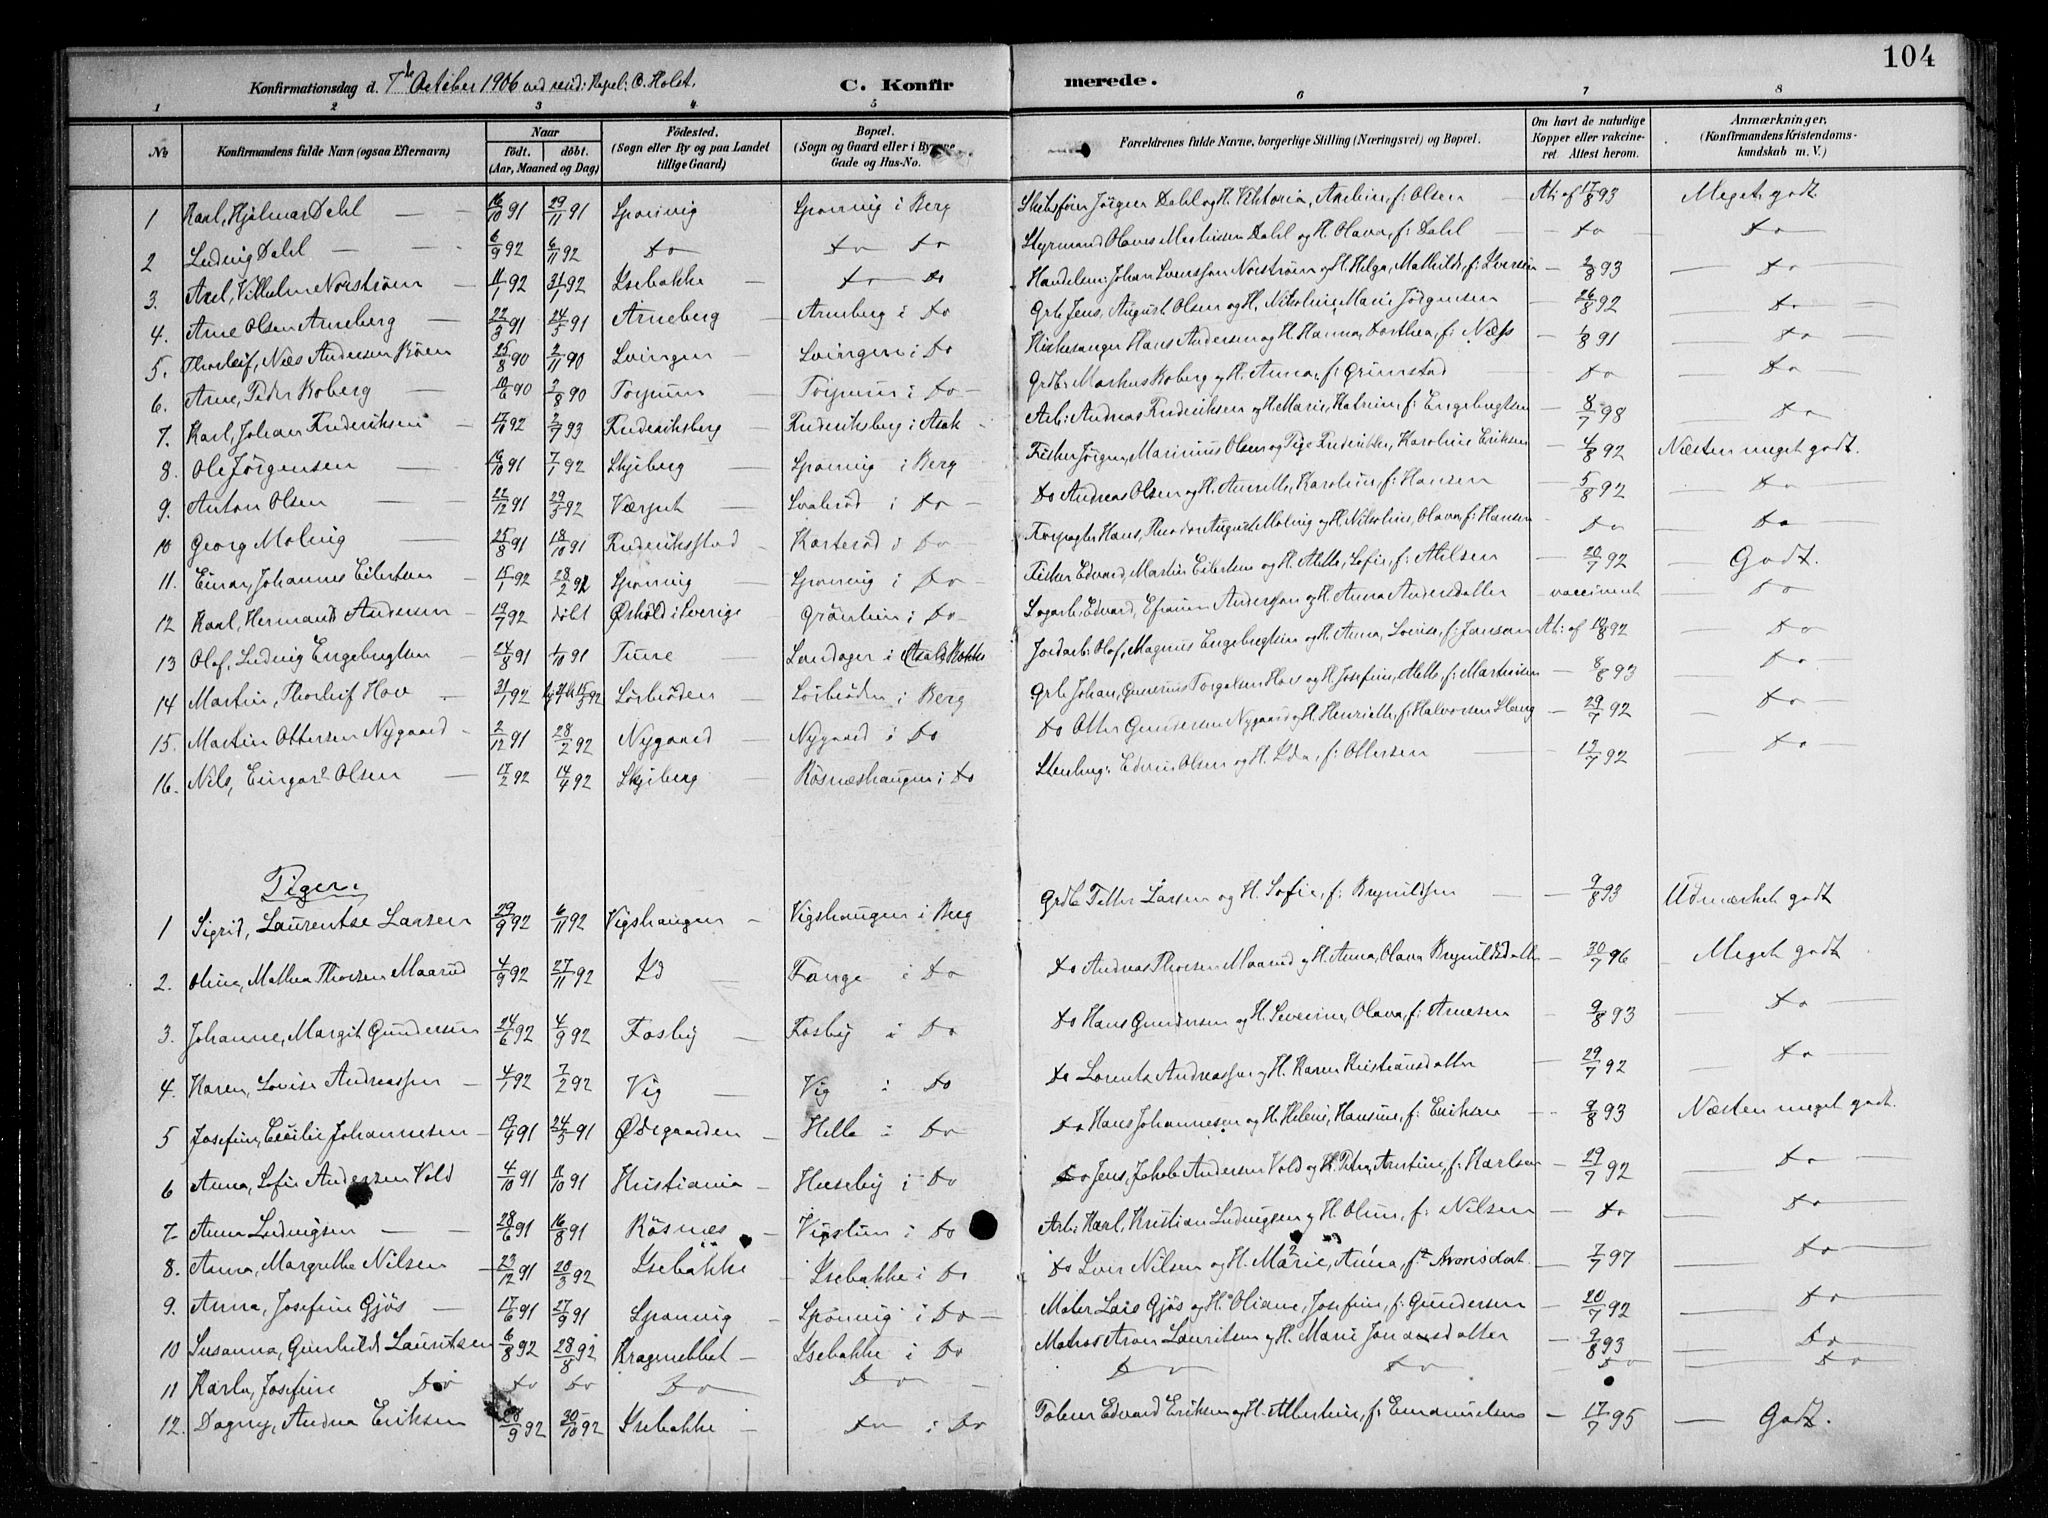 104
Konfirmationsdag d. 7de October 1906 ved resid: Kapel: C. Holst. C. Konfirmerede.
1 2 3 4 5 6 7 8
No Konfirmandens fulde Navn (ogsaa Efternavn) Naar født. døbt. (Aar, Maaned og Dag) Fødested. (Sogn eller By og paa Landet tillige Gaard) Bopæl. (Sogn og Gaard eller i By Gade og Hus-No. Forældrenes fulde Navne, borgerlige Stilling (Næringsvei) og Bopæl. Om havt de naturlige Kopper eller vakcineret Attest herom. Anmærkninger. (Konfirmandens Kristendomskundskab m. V.)
1 Karl, Hjalmar Dahl 16/10 91 29/11 91 Sponvig Sponvig i Berg Jørgen Dahl og H. Viktoria, f: Olsen At: af 17/8 93 Meget godt
2 Ludvig Dahl 6/9 92 6/11 92 do do do Styrmand Olaves Mathisen Dahl og H. Olava, f: Dahl do do
3. Axel, Vilhelm Norstrøm 11/1 92 31/1 92 Isebakke do do Handelsm: Johan Svensson Norstrøm og H. Helga, Mathilde, f: Iversen 2/8 93 do
4. Arne Olsen Arneberg 22/3 91 24/5 91 Arneberg Arneberg i do Grb Jens, August Olsen og H. Nikoline, Marie Jørgensen 26/8 92 do
5. Thorleif, Næs Andersen Røen 25/8 90 2/11 90 Svingen Svingen i do Kirkesanger Hans Andersen og H. Hanna, Dorthea, f: Næss 1/8 91 do
6. Arne, Peder Boberg 10/6 90 3/8 90 Torpum Torpum i do Grdb: Markus Boberg og H. Anna, f: Grimstad do do
7. Karl, Johan Frederiksen 17/10 92 2/7 93 Frederiksberg Frederiksberg i Asak Arb: Andreas Frederiksen og H. Marie, Katrine, f: Engebregtsen 8/7 98 do
8. Ole Jørgensen 16/10 91 7/1 92 Skjeberg Sponvig i Berg Fisker Jørgen, Marinius Olsen og Pige Fredrikke, Karoline Eriksen 4/8 92 Næsten meget godt.
9. Anton Olsen 22/12 91 29/3 92 i do do Andreas Olsen og H. Annette, Karoline, f: Hansen 5/8 92 do
10 Georg Molvig 25/8 91 18/10 91 Frederiksstad i do Forpagter Hans, Theodor August Molvig og H. Nikoline, Olava, f: Hansen do do
11. Einar, Johannes Eilertsen 15/1 92 28/2 92 Sponvig Sponvig i do Fisker Edvard, Martin Eilertsen og H. Mette, Sofie, f: Nilsen 20/7 92 Godt.
12 Karl, Hermand Andersen 13/7 92 døbt i Sverige i do Sagarb: Edvard, Efraim Andersson og H. Anna Andersdatter vaccineret do
13 Olaf, Ludvig Engebregtsen 24/8 91 1/10 91 Tune i Asak Jordarb: Olaf, Magnus Engebregtsen og H. Anna, Lovise, f: Janson At: af 10/8 92 do
14 Martin, Thorleif Hov 31/1 92 Sørbrøden Sørbrøden i Berg Grb Johan, Torgalsen Hov og H. Josefine, Mette, f: Martinsen 8/8 93 do
15. Martin Ottersen Nygaard 2/12 91 28/2 92 Nygaard Nygaard i do do Otter Gundersen Nygaard og H. Henriette, f: Halvorsen 29/7 92 do
16. Nils, Eingar Olsen 17/2 92 14/4 92 Skjeberg Røsneshaugen i do Stenhug: Edvin Olsen og H. Ida, f: Ottersen 12/7 92 do
Piger.
1 Sigrid, Laurentse Larsen 29/9 92 6/11 92 Vigshaugen Vigshaugen i Berg Grdb Petter Larsen og H. Sofie, f: Brynildsen 9/8 93 Udmærket godt
2. Olina, Mathea Thorsen Maarud 4/9 92 27/11 92 Id Fange i do do Andreas Thorsen Maarud og H. Anna, Olava Brynildsdatter 30/7 96 Meget godt
3. Johanne, Margit Gundersen 24/6 92 4/9 92 Fosby Fosby i do do Hans Gundersen og H. Severine, Olava, f: Arnesen 9/8 93 do
4. Karen, Lovise Andreassen 4/1 92 7/2 92 Vig Vig i do do Lorents Andreassen og H. Karen Kristiansdatter 29/7 92 do
5 Josefine, Cecilie Johannesen 19/4 91 24/5 91 Ødegaarden Helle i do do Hans Johannesen og H. Helene, Hansine, f: Eriksen 9/8 93 Næsten meget godt.
6 Anna, Sofie Andersen Vold 4/10 91 11/10 91 Kristiania Huseby i do do Jens, Jakob Andersen Vold og H. Petra, f: Karlsen 29/7 92 do
7. Anna Ludvigsen 28/6 91 16/8 91 Røsnes i do Arb: Karl, Kristian Ludvigsen og H. Oline, f: Nilsen do do
8. Anna, Margrethe Nilsen 23/12 91 20/3 92 Isebakke Isebakke i do do Iver Nilsen og H. Marie, Anna, f: 7/7 97 do
9. Anna, Josefine Gjøs 17/6 91 27/9 91 Sponvig Sponvig i do Maler Lars Gjøs og H. Oliane, Josefine, f: Gundersen 20/7 92 do
10 Susanna, Gunhild Lauritsen 6/8 92 28/8 92 Isebakke i do Matros Aron Lauritsen og H. Marie Jonasdatter 9/8 93 do
11 Karla, Josefine do do do do do do do do do
12. Dagny, Andrea Eriksen 28/9 92 30/10 92 Isebakke do i do Edvard Eriksen og H. Albertine, f: Emanuelsen 17/7 95 Godt.